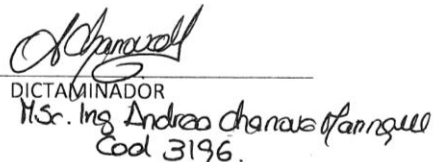 DICTAMINADOR
MSc. Ing Andrea Chanove Manrique
Cod 3196.